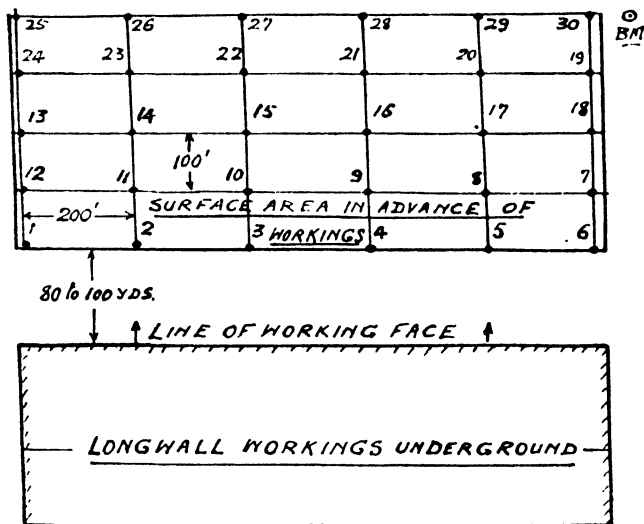 25 26 27 28 29 30
BM
24 23 22 21 20 19
13 14 15 16 17 18
100'
12 11 10 9 8 7
200' SURFACE AREA IN ADVANCE OF
WORKINGS
1 2 3 4 5 6
80 to 100 YDS.
LINE OF WORKING FACE
LONGWALL WORKINGS UNDERGROUND